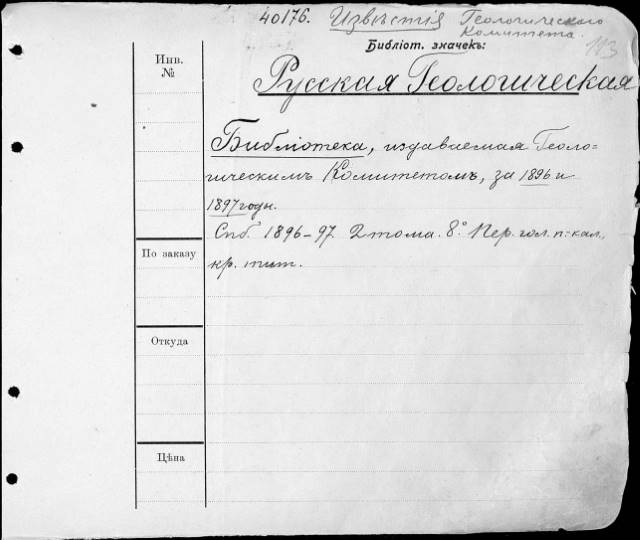 40176. Извѣстія Геологическаго
Комитета.
113
Библіот. значекъ:
Инв.
№
Русская Геологическая
Библіотека, издаваемая Геоло=
гическимъ Комитетомъ, за 1896 и
1897 годы.
Спб. 1896-97. 2 тома. 8° Пер. гол. п.-кал.,
кр. тит.
По заказу
Откуда
Цѣна